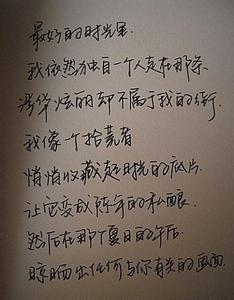 最好的时光里.
我依然独自一个人走在那条
浮华炫丽却不属于我的街.
我像一个拾荒者
悄悄收藏起时光的底片.
让它变成陈年的私酿.
然后在那个夏日的午后.
晾晒出任何与你有关的画面.